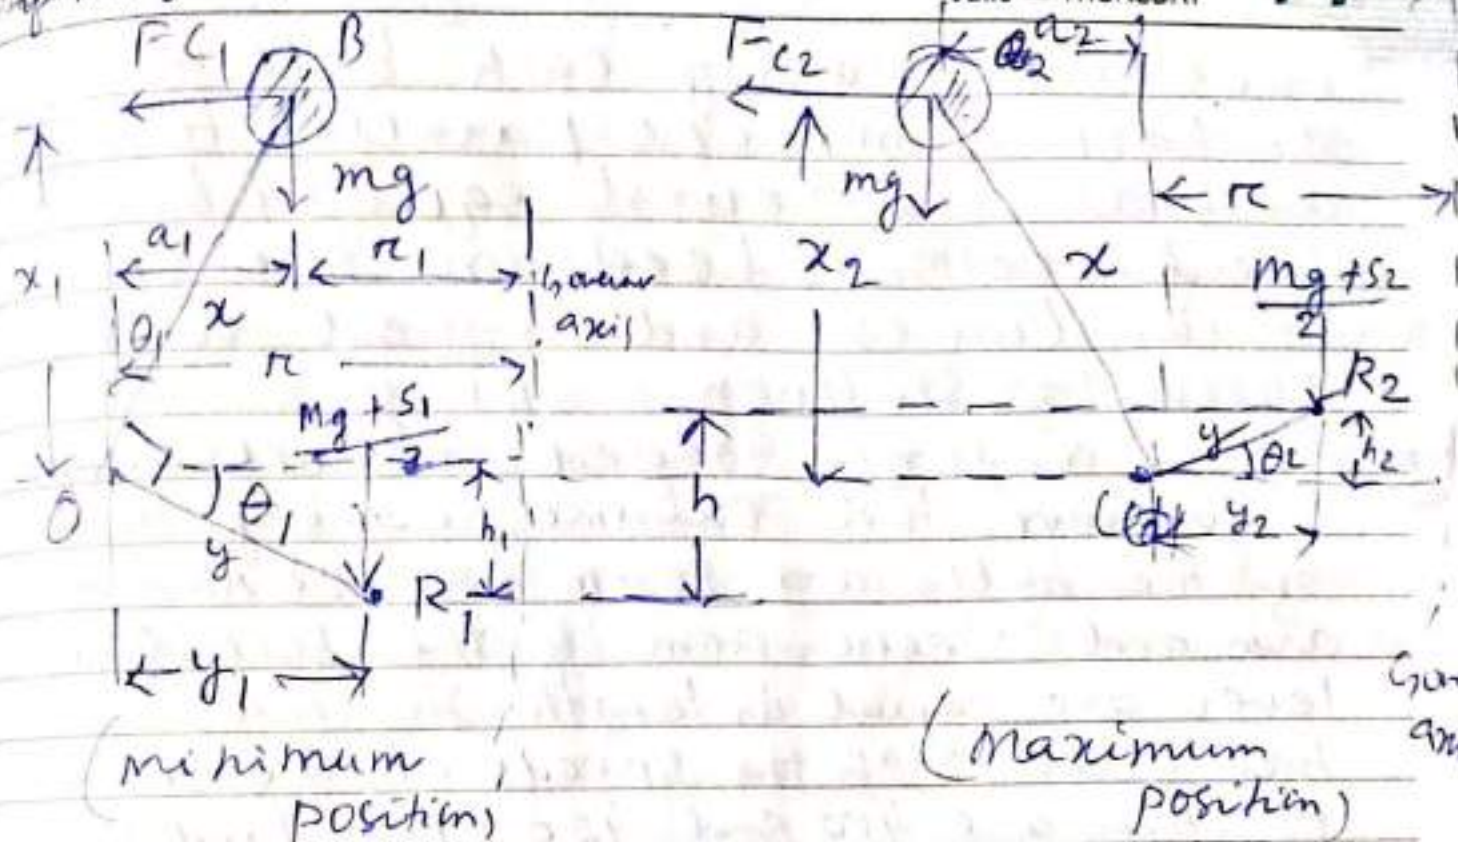 FC1
B
mg
a1
r1
Governor
axis
x1
θ1
x
r
Mg + S1
2
θ1
h1
O
y
R1
y1
(minimum
position)
Fc2
a2
mg
r
x2
x
Mg + S2
2
R2
y
θ2
h2
h
y2
(Maximum
position)